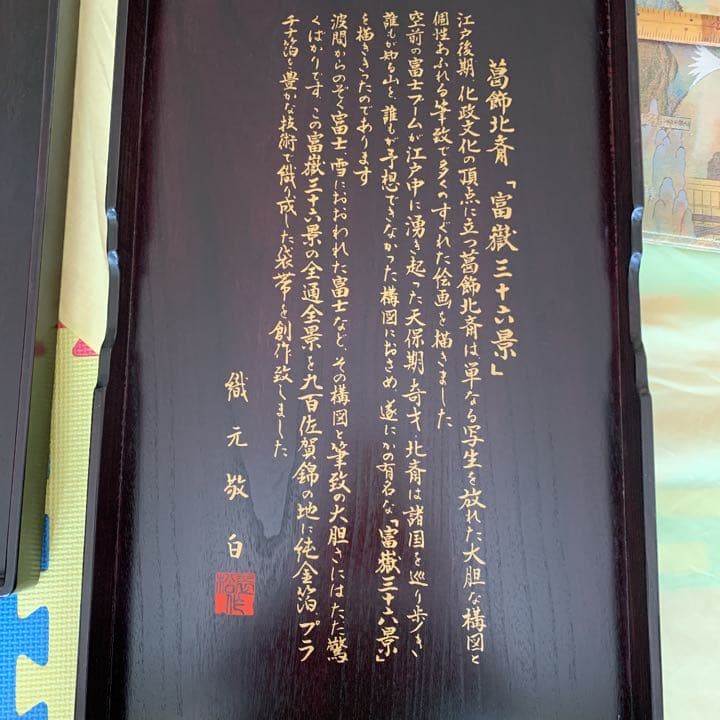 葛飾北斎「富嶽三十六景」
江戸後期 化政文化の頂点に立つ葛飾北斎は、単なる写生を放れた大胆な構図と
個性あふれる筆致で多くのすぐれた絵画を描きました
空前の富士ブームが江戸中に湧き起った天保期、奇才 北斎は諸国を巡り歩き
誰もが知る山を、誰もが予想できなかった構図におさめ、遂にかの有名な「富嶽三十六景」
を描ききったのであります
波間からのぞく富士、雪におおわれた富士など、その構図と筆致の大胆さにはただ驚
くばかりです この富嶽三十六景の全通全景を九百佐賀錦の地に純金箔 プラ
チナ箔を豊かな技術で織り成した袋帯を創作致しました
織元敬白